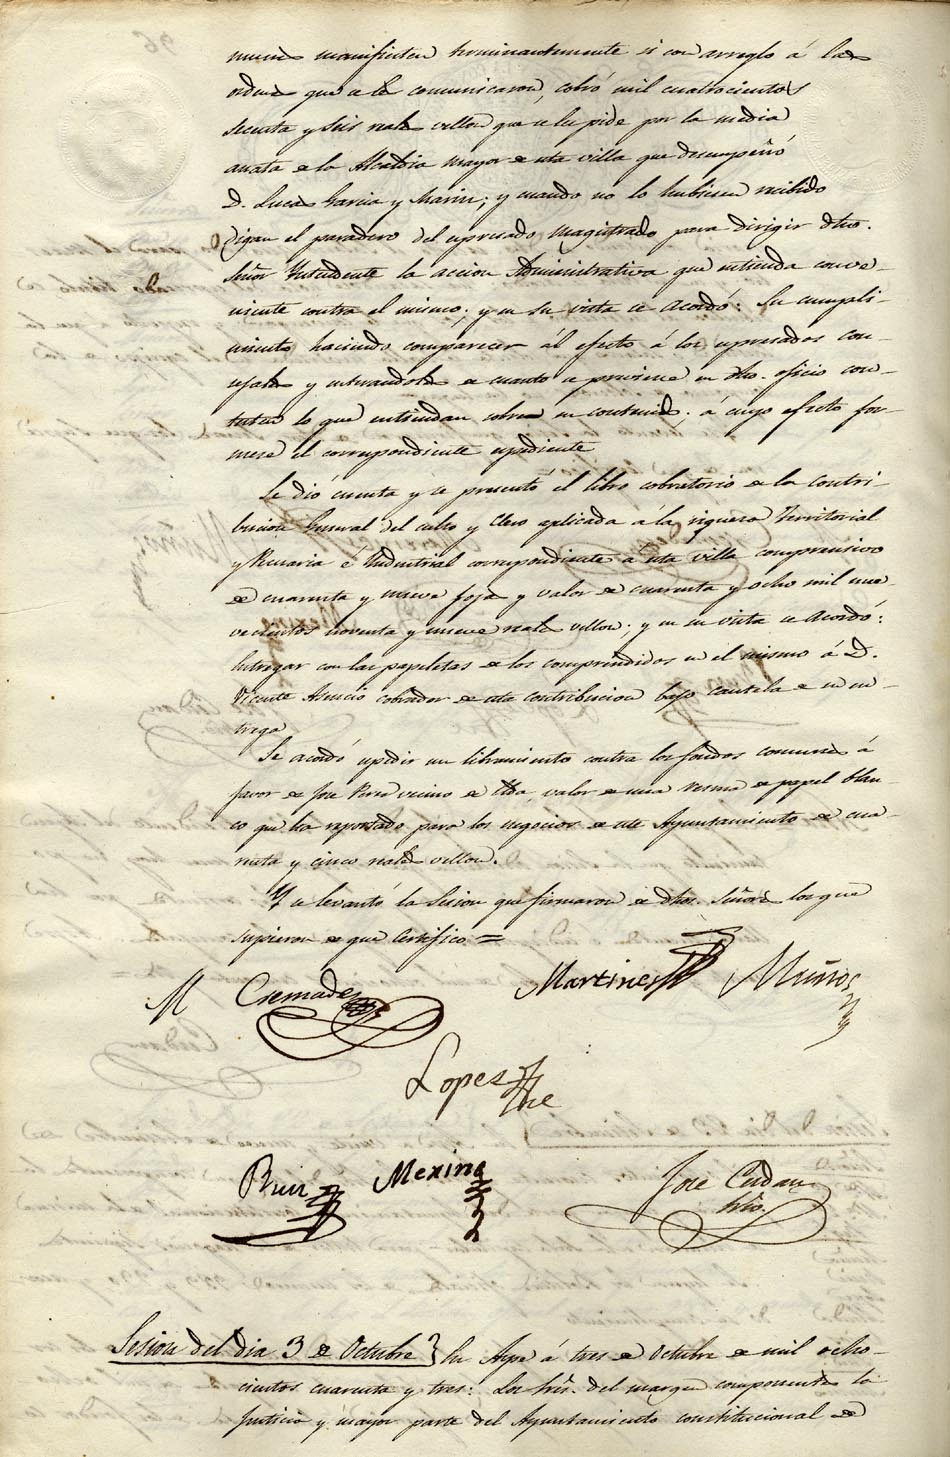 manifiesten terminantemente si con arreglo á las
ordenes que se le comunicaron, cobró mil cuatrocientos
secenta y seis reales vellon que se les pide por la media
anata de la Alcaldia mayor de esta villa que desempeñó
D. Lucas Garcia y Marin; y cuando no lo hubiesen recibido
digan el paradero del espresado Magistrado para dirigir dho.
Señor Yntendente la accion Administrativa que entienda conve-
niente contra el mismo; y en su vista se acordó: Su cumpli-
miento haciendo comparecer ál efecto á los espresados con-
cejales y enterandoles de cuanto se previene en dho. oficio con-
testen lo que entiendan sobre su contenido; á cuyo efecto for-
mese el correspondiente espediente
Se dió cuenta y se presentó el libro cobratorio de la Contri-
bucion General del culto y Clero aplicada á la riqueza Territorial
y Pecuaria é Yndustrial correspondiente á esta villa comprensivo
de cuarenta y nueve fojas y valor de cuarenta y ocho mil nue-
vecientos noventa y nueve reales vellon; y en su vista se acordó:
Entregar con las papeletas de los comprendidos en el mismo á D.
Vicente cobrador de esta contribucion bajo cautela de su en-
trega
Se acordó espedir un libramiento contra los fondos comunes á
favor de José vecino de Elda, valor de una resma de papel blan-
co que ha reportado para los negocios de este Ayuntamiento de cua-
renta y cinco reales vellon.
Y se levantó la Sesion que firmaron de dhos. Señores los que
supieron de que Certifico =
M Cremades Martines Muños
Lopes
Ruiz Mexina José Cerdan
Srio.
Sesion del dia 3 de Octubre } En Aspe á tres de Octubre de mil ocho-
cientos cuarenta y tres: Los Sres. del margen componentes la
Justicia y mayor parte del Ayuntamiento constitucional de